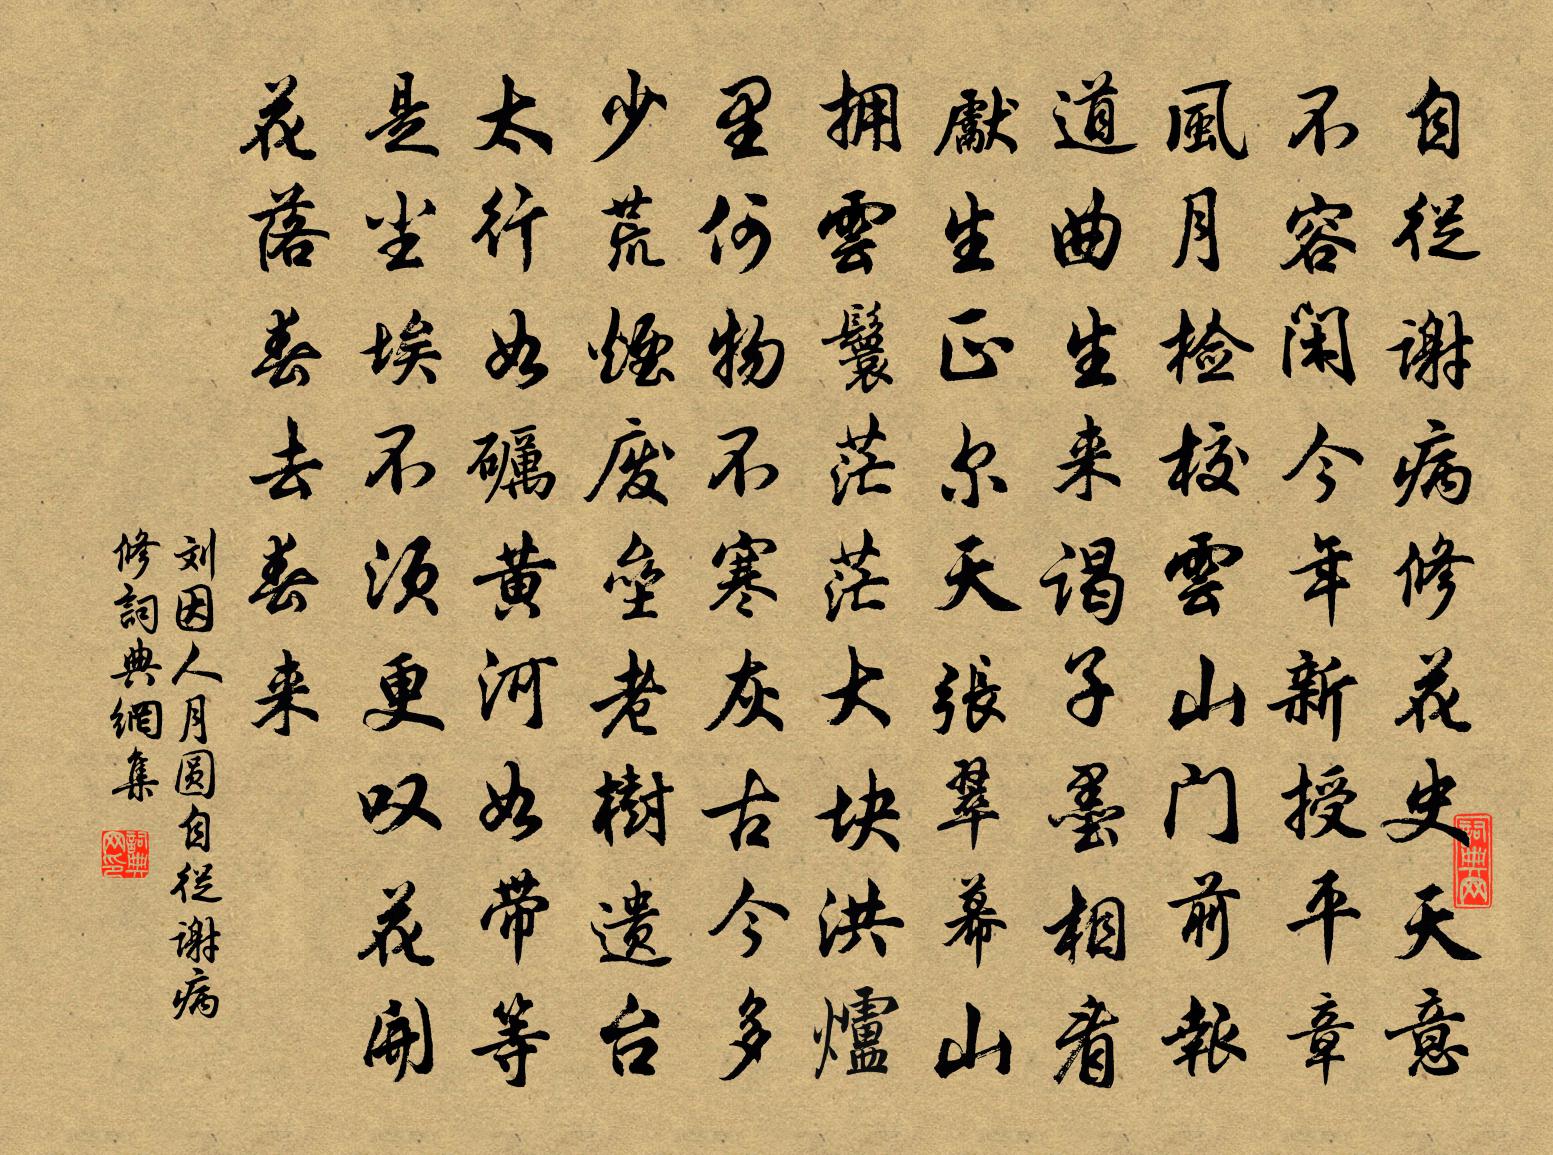 自從谢病修花史天意
不容閑今年新授平章
風月检校雲山门前報
道曲生来谒子墨相看
獻生正尔天張翠幕山
拥雲鬟茫茫大块洪爐
里何物不寒灰古今多
少荒煙废壘老樹遗台
太行如礪黄河如带等
是尘埃不须更叹花開
花落春去春来
刘因人月圆自從谢病
修詞典網集
詞典网
詞典网印